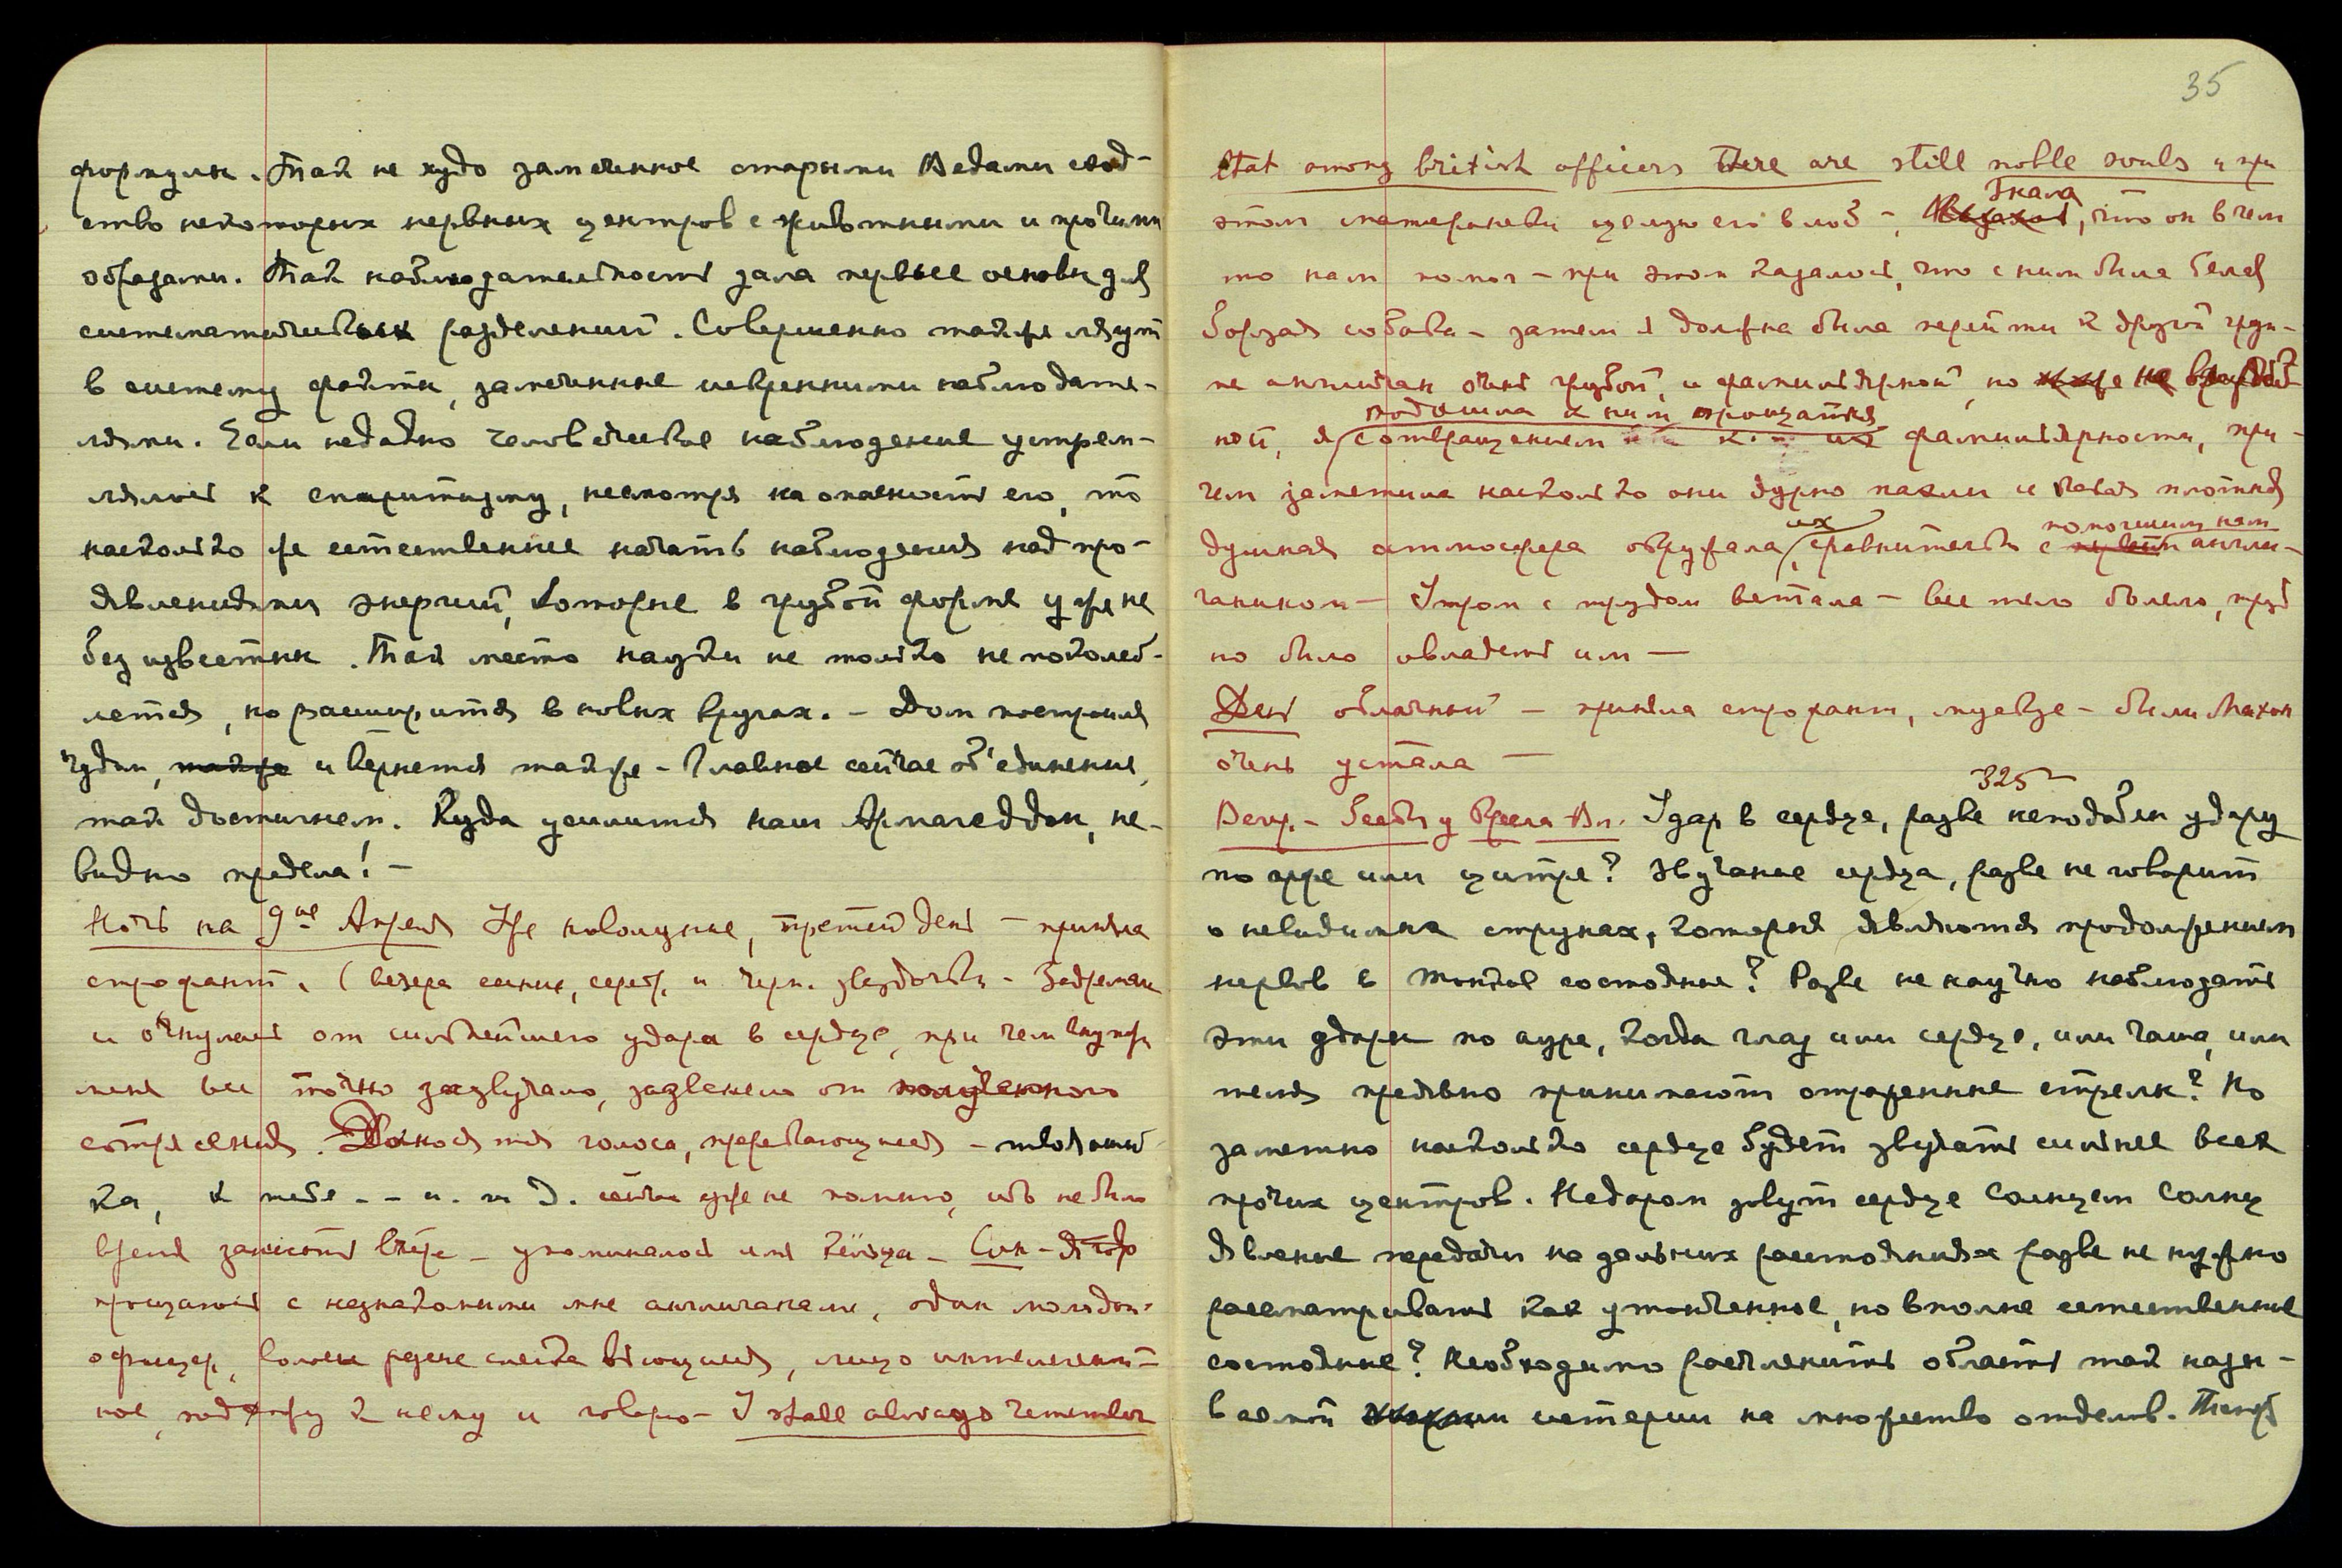 формулы. Так не худо замеченное старыми Ведами сход-
ство некоторых нервных центров с животными и прочими
образами. Так наблюдательность дала первые основы для
систематических разделений. Совершенно также лягут
в систему факты, замеченные искренними наблюдате-
лями. Если недавно человеческое наблюдение устрем-
лялось к спиритизму, несмотря на опасность его, то
насколько же естественнее начать наблюдения над про-
явлениями энергий, которые в грубой форме уже не
безизвестны. Так место науки не только не поколеб-
лется, но расширится в новых кругах. – Дом построила
Чудом, также и вернется также – Главное сейчас об'единение,
так достигнем. Куда усилится наш Армагеддон, не-
видно предела! –
Ночь на 9ое Апреля Уже новолуние, третий день – приняла
строфант. (вечера синие, сереб. и черн. звездочки – Задремала
и очнулась от сильнейшего удара в сердце, при чем внутри
меня все точно зазвучало, зазвенело от полученного
сотрясения. Доносятся голоса, пререкающиеся –
ка, к тебе – – и. т. д. уже не помню, ибо не было
время записать вчера – упоминалось имя – Сон – я
прощалась с незнакомыми мне англичанами, один молодой
офицер, волосы редкие слегка вьющиеся, лицо интелегент-
ное, подхожу к нему и говорю – I shall always remember
35
that among british officers there are still noble souls и при
Знала
этом матерински целую его в лоб –, что он в чем
то нам помог – при этом казалось, что с ним была белая
борзая собака – затем я должна была перейти к другой груп-
пе англичан очень грубой, и фамильярной, но не враждеб
подошла к ним прощаться
ной, я с отвращением их фамильярности, при-
чем заметила насколько они дурно пахли и какая плотная
их помогшим нам
душная атмосфера окружала, сравнительно с первым англи-
чанином – Утром с трудом встала – все тело болело, труд
но было овладеть им —
День облачный – приняла строфант, – были
очень устала —
325
Вечр. – Удар в сердце, разве не подобен удару
по арфе или цитре? Звучание сердца, разве не говорит
о невидимых струнах, которые являются продолжением
нервов в тонкое состояние? Разве не научно наблюдать
эти удары по ауре, когда глаз или сердце, или чаша, или
темя предивно принимают отраженные стрелы? Но
заметно насколько сердце будет звучать сильнее всех
прочих центров. Недаром зовут сердце Солнцем Солнц
Явление передачи на дальних расстояниях разве не нужно
рассматривать как утонченное, но вполне естественное
состояние? Необходимо расчленить область так назы-
ваемой истерии на множество отделов. Теперь